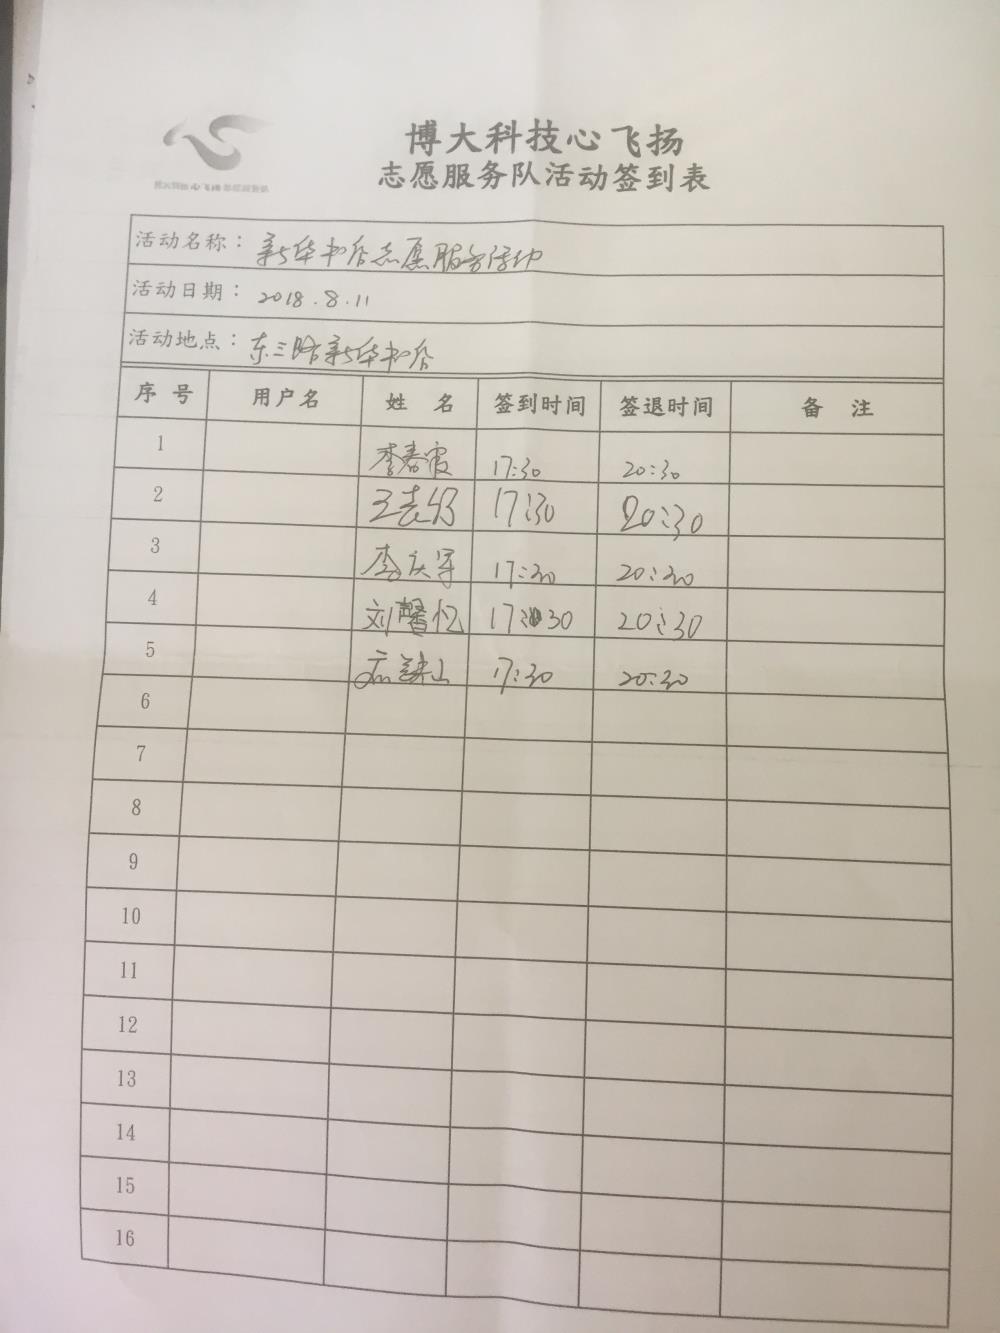 博大科技心飞扬
志愿服务队活动签到表
活动名称：新华书店志愿服务活动
活动日期：2018.8.11
活动地点：东三路新华书店
序号 用户名 姓名 签到时间 签退时间 备注
1 李春霞 17:30 20:30
2 王志 17:30 20:30
3 李庆军 17:30 20:30
4 刘馨忆 17:30 20:30
5 山 17:30 20:30
6
7
8
9
10
11
12
13
14
15
16